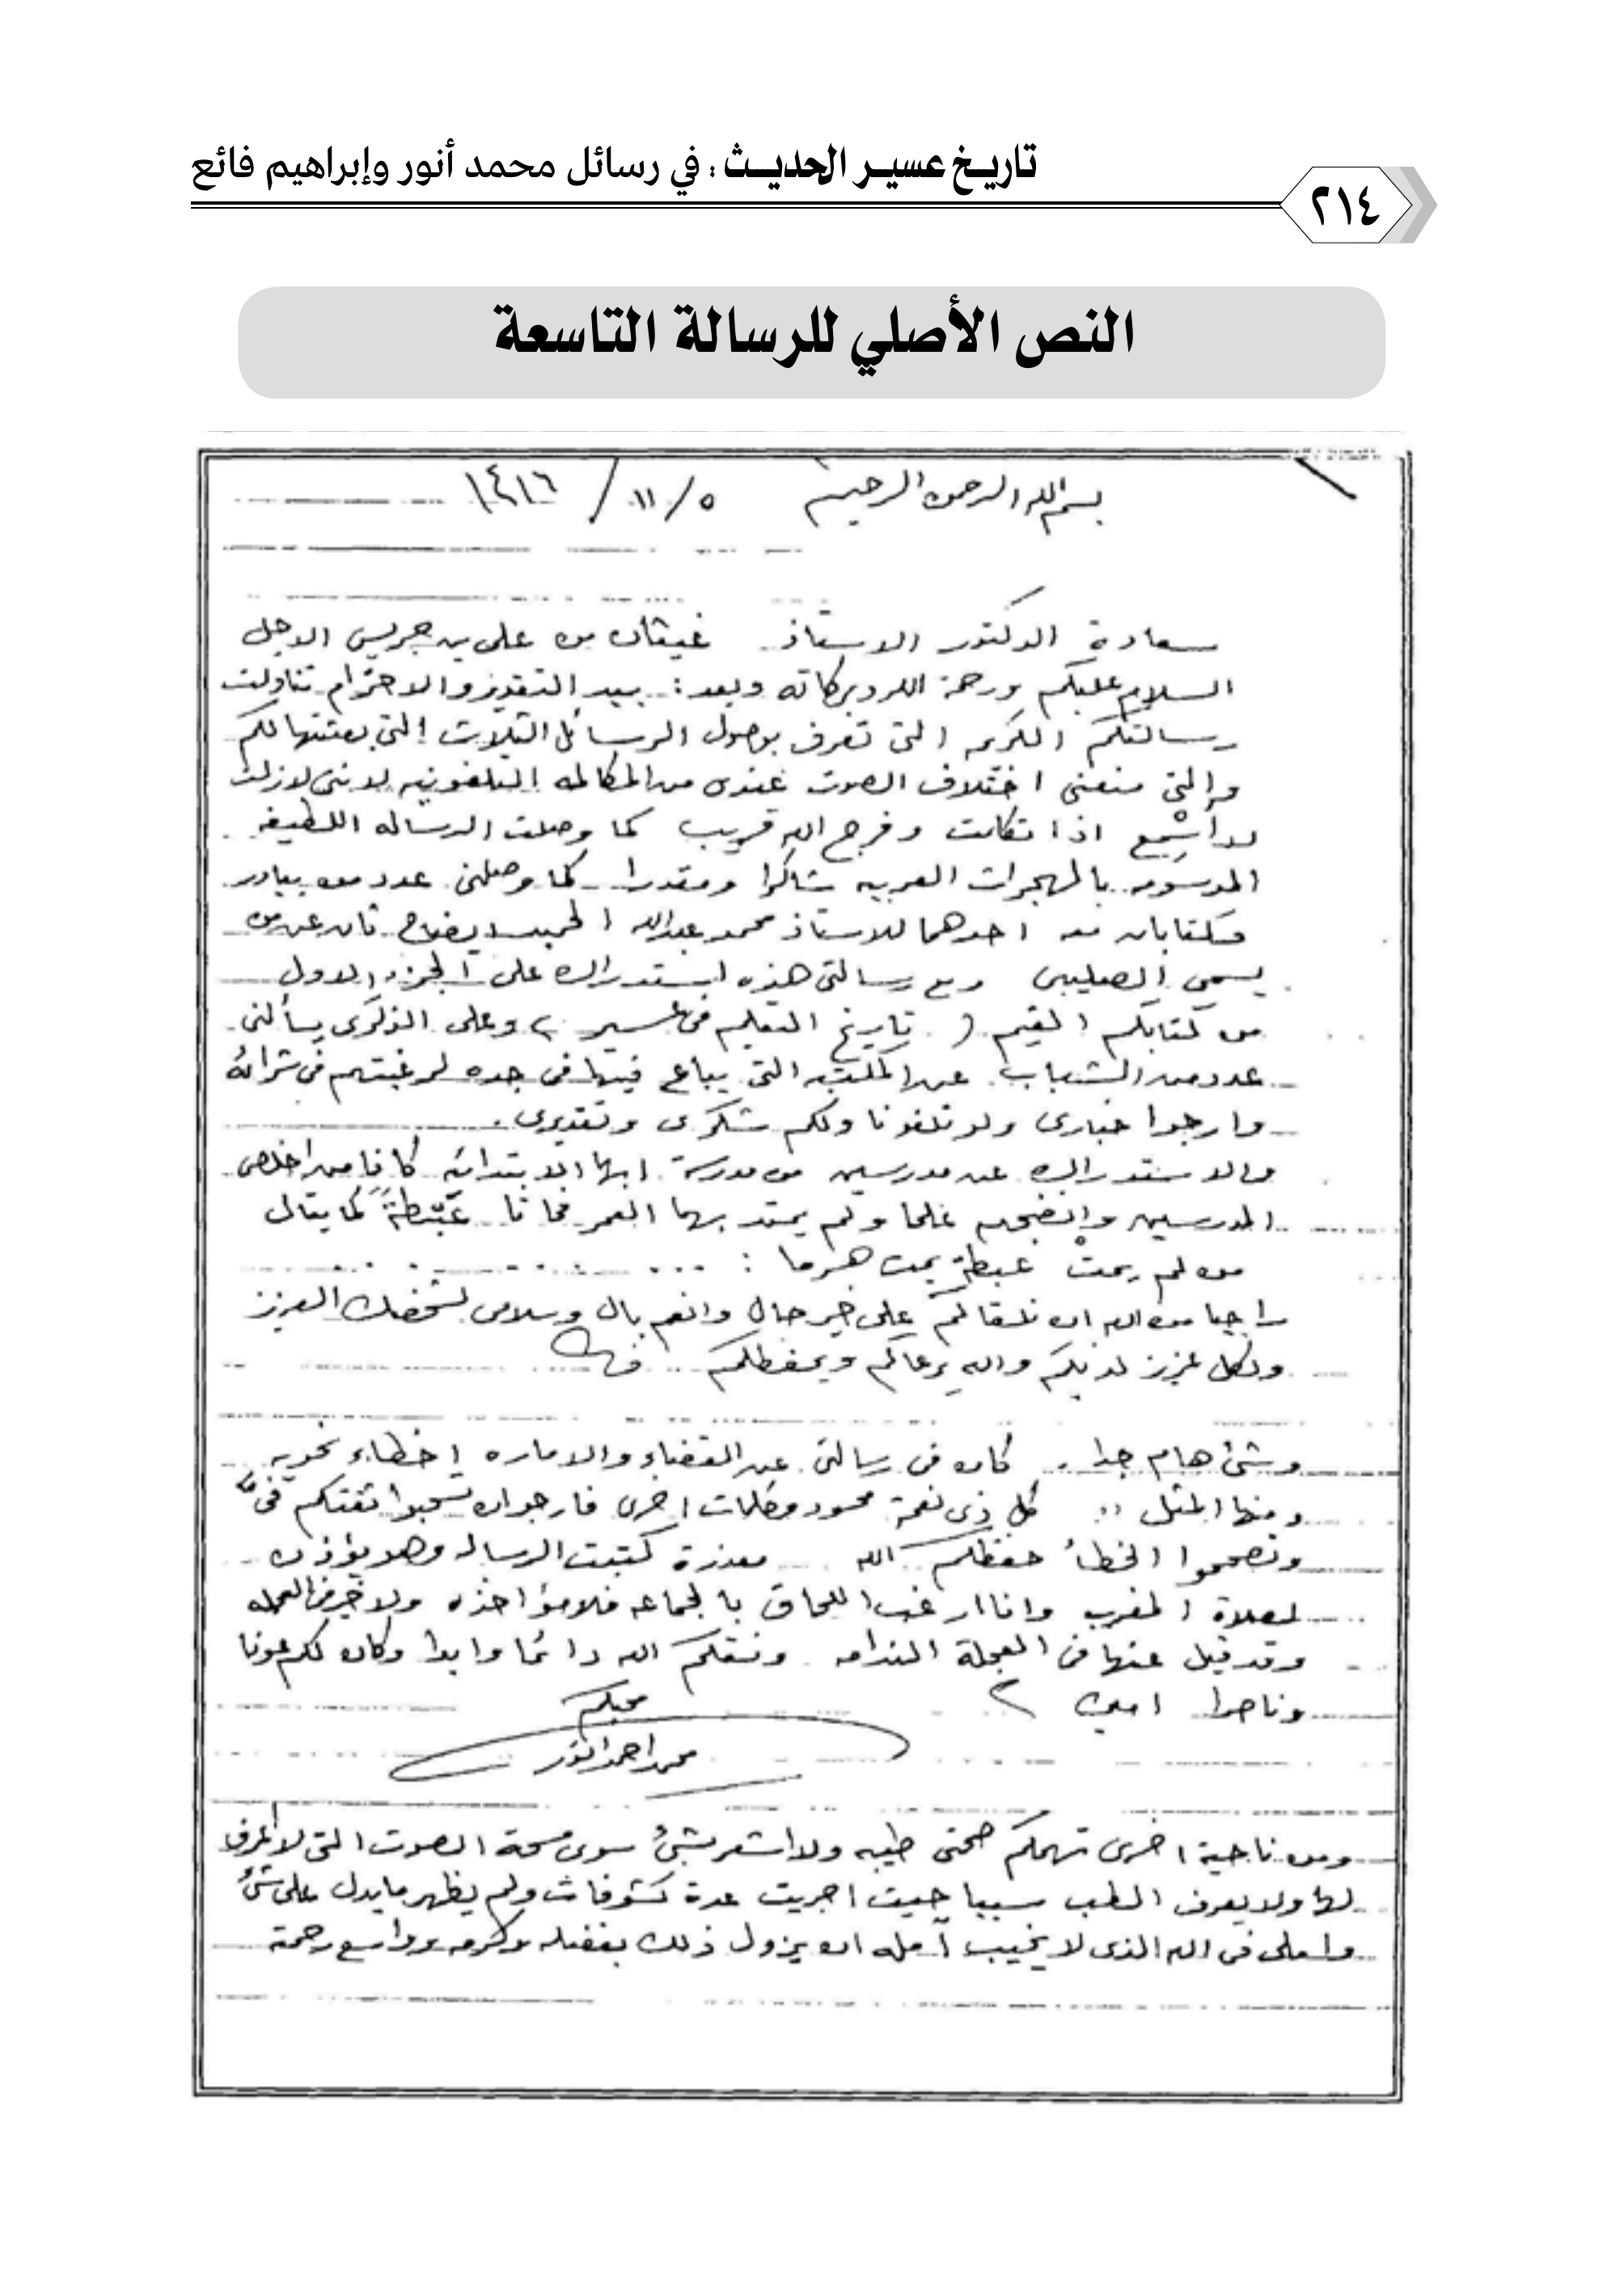 تاريخ عسير الحديث : في رسائل محمد أنور وإبراهيم فائع
٢١٤
النص الأصلي للرسالة التاسعة
بسم الله الرحمن الرحيم ٥ / ١١ / ١٤١٦
سعادة الدكتور الاستاذ غيثان بن على بن جريس الاجل
السلام عليكم ورحمة الله وبركاته وبعد : بيد التقدير والاحترام تناولت
رسالتكم الكريمه التى تعرف بوصول الرسائل الثلاث التى بعثتها لكم
والتى منعنى اختلاف الصوت عندى من المكالمه التلفونيه لاننى لازلت
لا اسمع اذا تكلمت وفرج الله قريب كما وصلت الرساله اللطيفه
الموسومه بالهجرات العربيه شاكرا ومقدرا كما وصلنى عدد من بيادر
وكتابان معه احدهما للاستاذ محمد عبدالله الحميد وايضا ثان عن من
يسمى الصليبى ومع رسالتى هذه استدراك على الجزء الاول
من كتابكم القيم ( تاريخ التعليم فى عسير ) وعلى الذكرى يسألنى
عدد من الشباب عن المكتبه التى يباع فيها فى جده لرغبتهم فى شرائه
وارجوا خبارى ولو تلفونا ولكم شكرى وتقديرى .
والاستدراك عن مدرسين من مدرسة ابها الابتدائيه كانا من اخلص
المدرسين وانضجهم علما ولم يمتد بهما العمر فماتا عَبْطةً كما يقال
من لم يمتْ عبطة يمت هرما :
راجيا من الله ان نلقاكم على خير حال وانعم بال وسلامى لشخصك العزيز
ولكل عزيز لديكم والله يرعاكم ويحفظكم
وشئ هام جدا . كان فى رسالتى عن القضاء والاماره اخطاء نحويه
ومنها المثل :: كل ذى نعمة محسود وكلمات اخرى فارجوا ان تسحبوا ثقتكم فىّ
وتصححوا الخطأ حفظكم الله معذرة كتبت الرساله وهو يؤذن
لصلاة المغرب وانا ارغب اللحاق بالجماعه فلا مؤاخذه ولا خير فى العجله
وقد قيل عنها فى العجلة الندامه وتسقلكم الله دائما وابدا وكان لكم عونا
وناصرا امين
محبكم
محمد احمد انور
ومن ناحية اخرى تهمكم صحتى طيبه ولا اشعر بشئ سوى بحة الصوت التى لا اعرف
لها ولا يعرف الطب سببا حيث اجريت عدة كشوفات ولم يظهر ما يدل على شئ
واملى فى الله الذى لا يخيب آمله ان يزول ذلك بفضله وكرمه وواسع رحمة